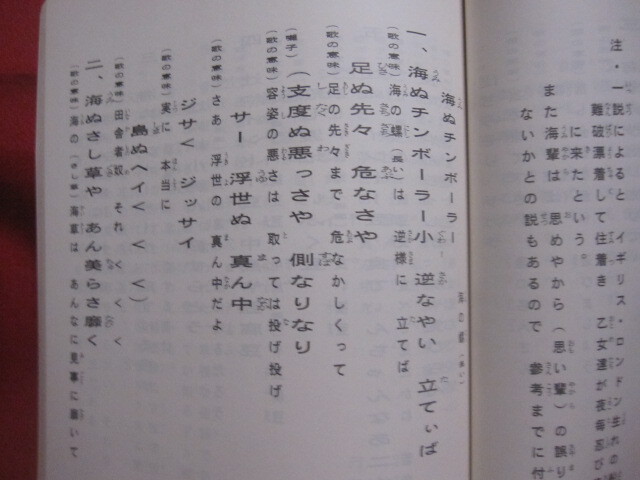 注・一説によると イギリス・ロンドン生れの
難破漂着して住着き 乙女達が夜毎忍び
に来たという
また海輩は 思めやから(思い輩)の誤り
ないかとの説もあるので 参考までに付
海ぬチンボーラー
一、海ぬチンボーラー小 逆なやい 立てぃば
(歌の意味)海の螺(長い)は 逆様に 立てば
足ぬ先々 危なさや
(歌の意味)足の先々まで 危なかしくって
(囃子)(支度ぬ悪っさや 側なりなり
(歌の意味)容姿の悪さは 取っては投げ投げ
サー 浮世ぬ 真ん中
(歌の意味)さあ 浮世の 真ん中だよ
ジサ〱 ジッサイ
(歌の意味)実に 本当に
島ぬヘイ〱 〱 〱)
(歌の意味)田舎者奴 それ〱 〱 〱
二、海ぬさし草や あん美らさ靡く
(歌の意味)海の(さし草)海草は あんなに見事に靡いて